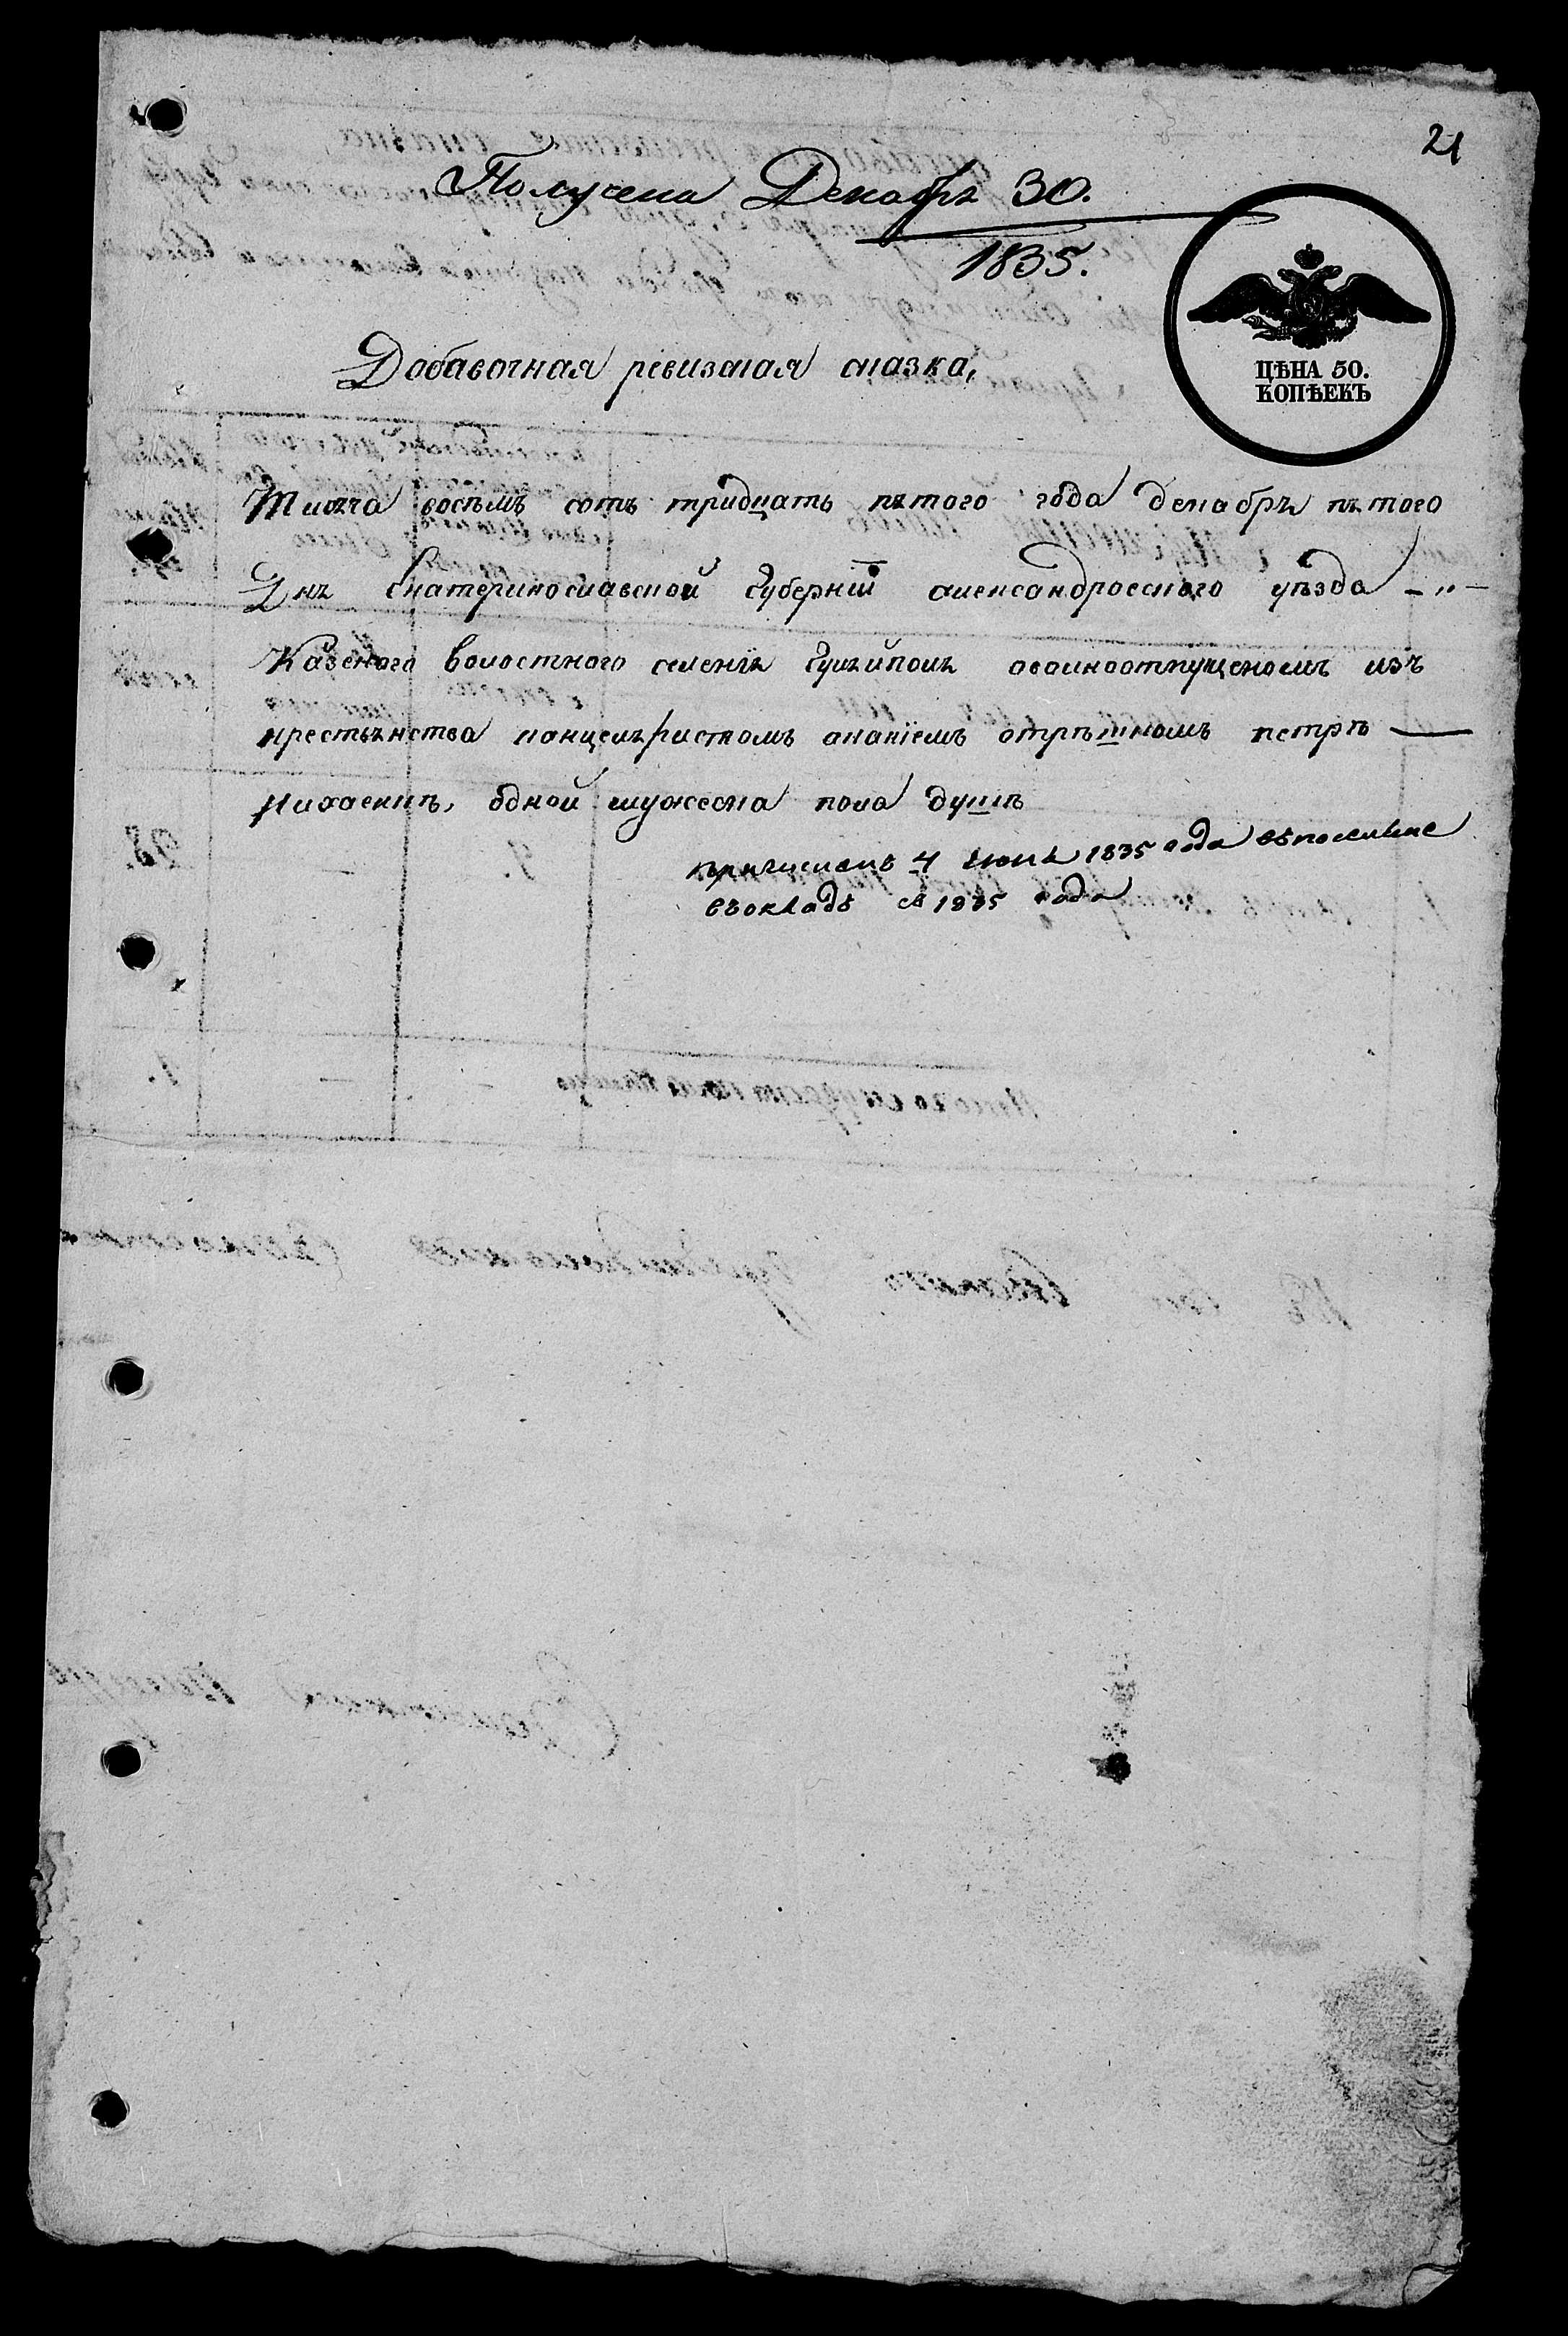 21
Получена Декабря 30.
1835.
ЦѢНА 50.
КОПѢЕКЪ
Добавочная ревизская сказка,
Тисяча восѣмъ сотъ тридцать пятого года декабря пятого
Дня Екатеринославской Губерніи александровского уѣзда — „ —
Казеного волостного селенія Гуляйполя оволноотпущеномъ изъ
крестьянства канцеляристомъ ананіемъ петрѣ —
одной мужеска пола душѣ
причисленъ 4 июня 1835 года
въокладъ съ 1835 года